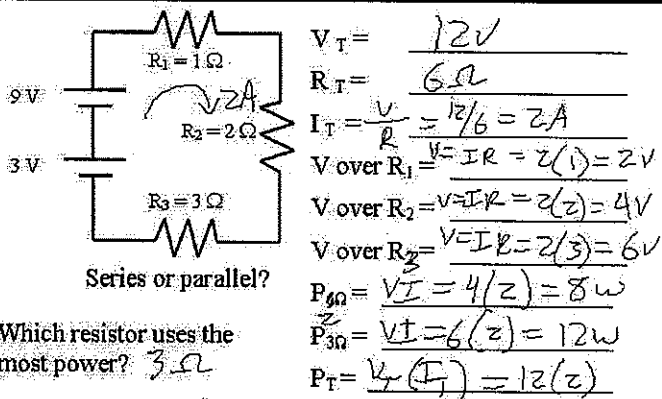 R₁=1Ω
9 V
2A
R₂=2Ω
3 V
R₃=3Ω
Series or parallel?
Which resistor uses the
most power? 3Ω
V T = 12V
R T = 6Ω
I T = V/R = 12/6 = 2A
V over R₁ = V=IR = 2(1)=2V
V over R₂ = V=IR = 2(2)=4V
V over R₃= V=IR=2(3)=6V
P = VI = 4(2)=8w
P3Ω = VI=6(2)= 12w
PT= VT(IT) = 12(2)